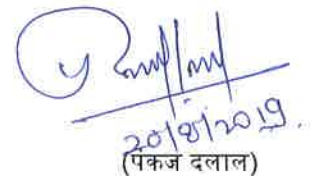 20/8/2019.
(पंकज दलाल)